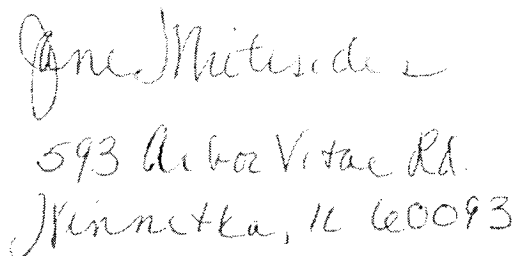 Jane Whitesides
593 Arbor Vitae Rd.
Winnetka, IL 60093